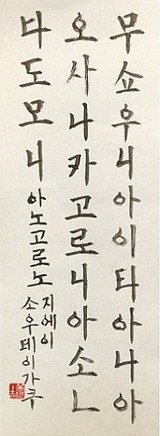 무쇼우니아이타아나아
오사나카고로니아소ㄴ
다도모니 아노고로노
지에이
소우테이가쿠